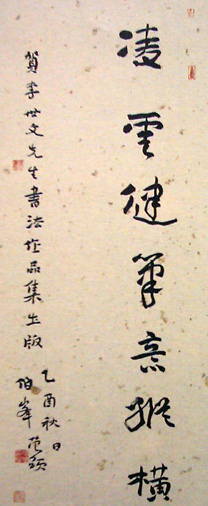 凌雲健筆意縱橫
賀李世文先生書法作品集出版
乙酉秋日
伯峯